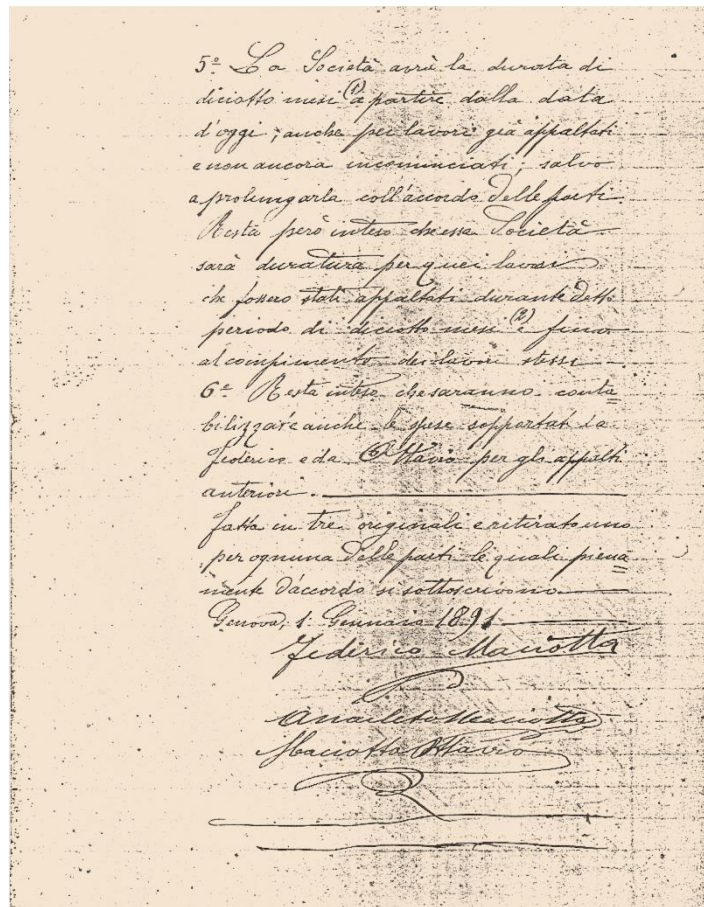 5º La Società avrà la durata di
diciotto mesi (1) a partire dalla data
d'oggi; anche pei lavori già appaltati
e non ancora incominciati, salvo
a prolungarla coll'accordo delle parti
Resta però inteso che essa Società
sarà duratura per quei lavori
che fossero stati appaltati durante detto
periodo di diciotto mesi (2) e fino
al compimento dei lavori stessi
6º Resta inteso che saranno conta=
bilizzare anche le spese sopportat da
Federico e da Ottavio per gli appalti
anteriori.
fatta in tre originali e ritirato uno
per ognuna delle parti le quali piena=
mente d'accordo si sottoscrivono.
Genova, 1 Gennaio 1891
Federico Maciotta
Anacleto Maciotta
Maciotta Ottavio